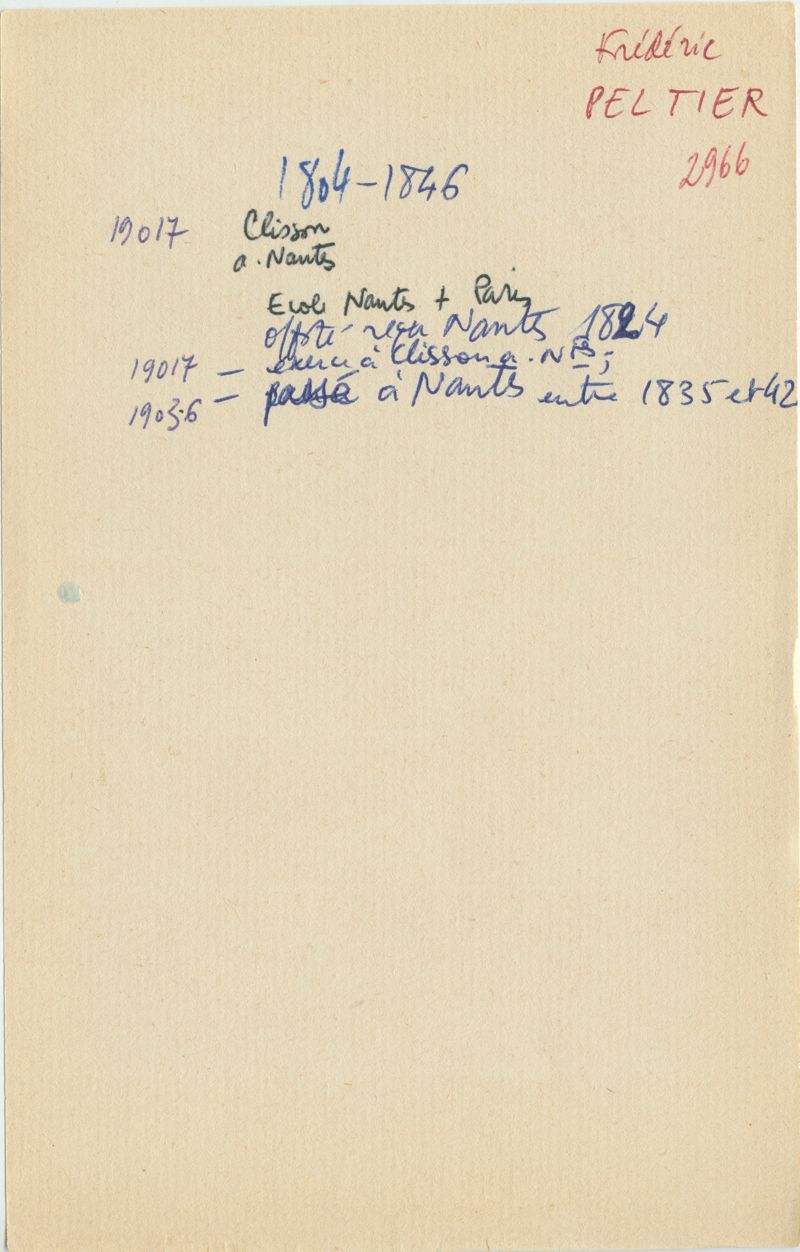 Frédéric
PELTIER
2966
1804-1846
19017 Clisson
a. Nantes
Ecole Nantes + Paris
reçu Nantes 1824
19017 - exerce à Clisson a. Ntes;
19036 - passé à Nantes entre 1835 et 42